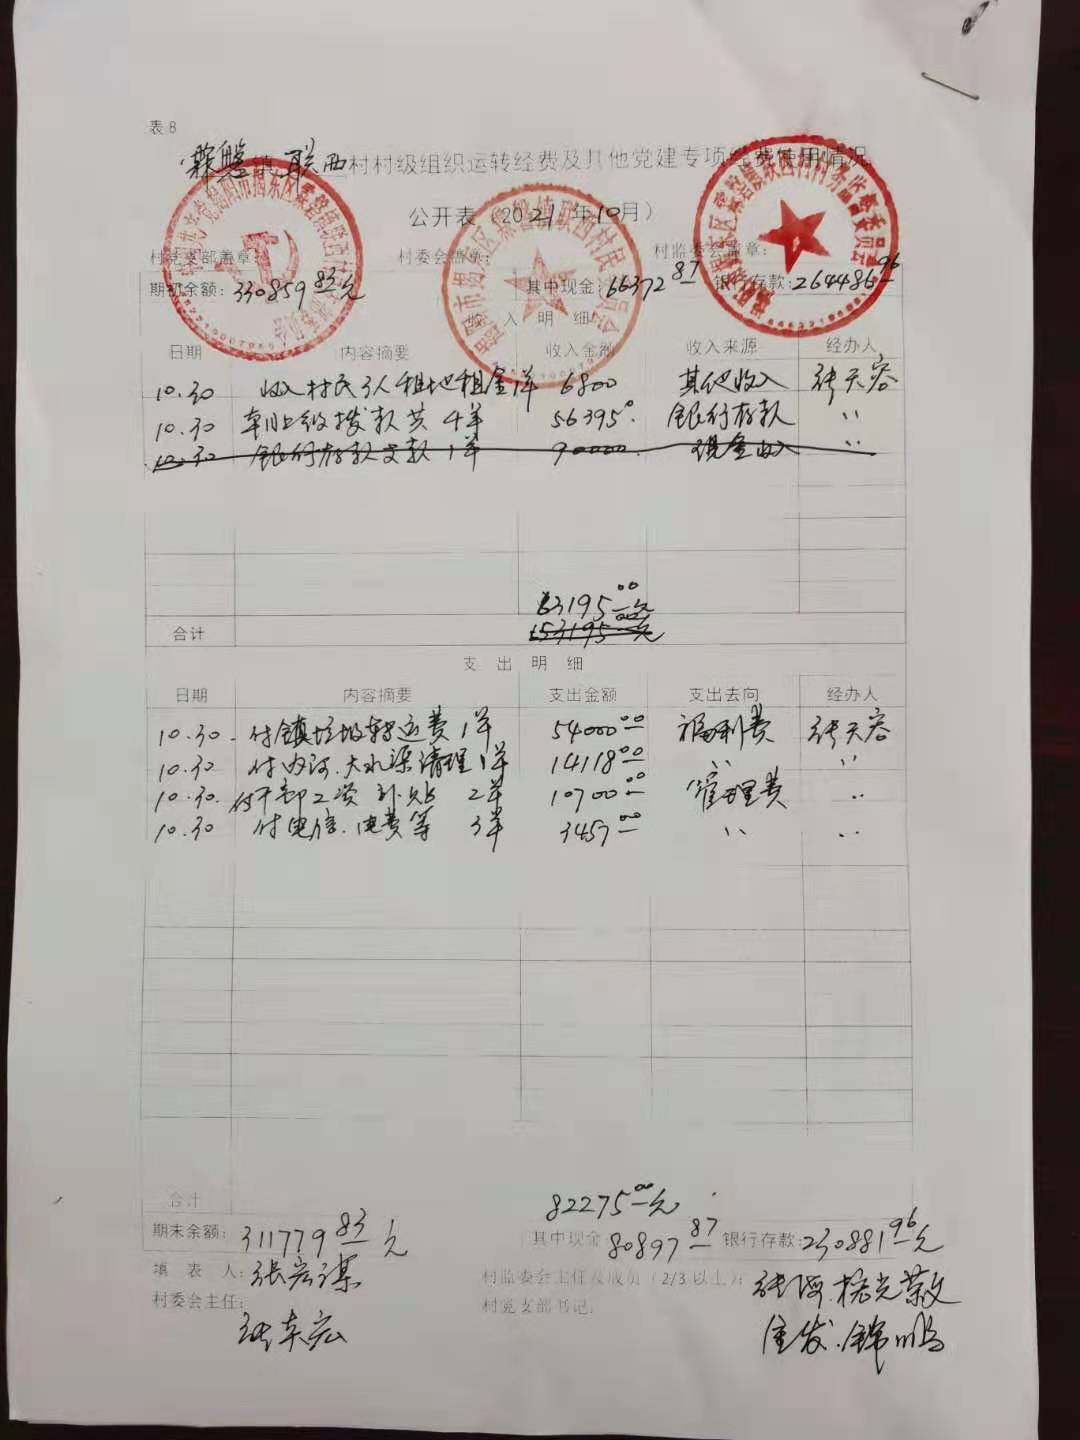 表8
霖磐镇联西村村级组织运转经费及其他党建专项经费使用情况
公开表（2021年10月）
村党支部盖章： 村委会盖章： 村监委会盖章：
期初余额：330859.83元 其中现金：66372.87 银行存款：264486.96
收入明细
日期 内容摘要 收入金额 收入来源 经办人
10.30 收入村民引人租地租金1单 6800 其他收入 张天容
10.30 上级拨款共4单 56395 银行存款 〃
10.30 银行存款支款1单 90000 现金收入 〃
63195.00元
合计 153195.00元
支出明细
日期 内容摘要 支出金额 支出去向 经办人
10.30 付镇垃圾转运费1单 54000.00 福利费 张天容
10.30 付内河、大水渠清理1单 14118.00 〃 〃
10.30 付干部工资补贴2单 10700.00 管理费 〃
10.30 付电信、电费等3单 3457.00 〃 〃
合计 82275.00元
期末余额：311779.83元 其中现金：80897.87 银行存款：230881.96元
填表人：张宏谋 村监委会主任及成员（2/3以上）：
村委会主任： 村党支部书记：
张东宏